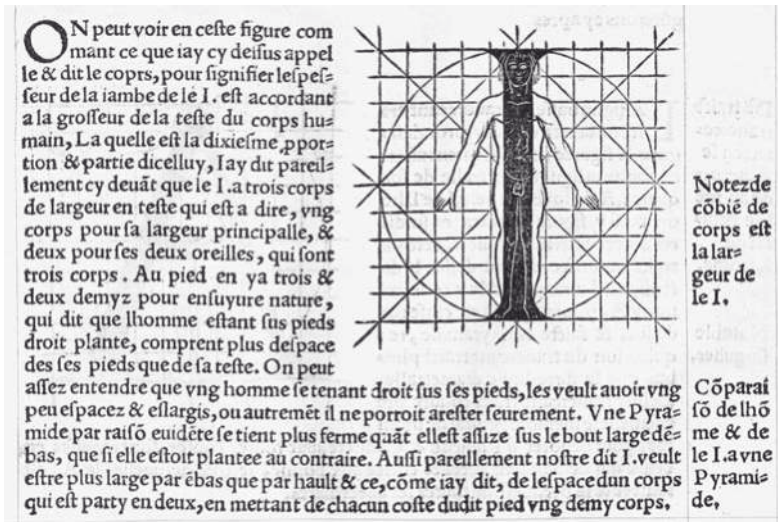 ON peut voir en ceſte figure com
mant ce que iay cy deſſus appel
le & dit le coprs, pour ſignifier leſpeſ=
ſeur de la iambe de le I. eſt accordant
a la groſſeur de la teſte du corps hu=
main, La quelle eſt la dixieſme ꝓpor=
tion & partie dicelluy, Iay dit pareil=
lement cy deuãt que le I. a trois corps
de largeur en teſte qui eſt a dire, vng
corps pour ſa largeur principalle, &
deux pour ſes deux oreilles, qui ſont
trois corps. Au pied en ya trois &
deux demyz pour enſuyure nature,
qui dit que lhomme eſtant ſus pieds
droit plante, comprent plus deſpace
des ſes pieds que de ſa teſte. On peut
aſſez entendre que vng homme ſe tenant droit ſus ſes pieds, les veult auoir vng
peu eſpacez & eſlargis, ou autremẽt il ne porroit areſter ſeurement. Vne Pyra=
mide par raiſõ euidẽte ſe tient plus ferme quãt elleſt aſſize ſus le bout large dẽ=
bas, que ſi elle eſtoit plantee au contraire. Auſſi pareillement noſtre dit I. veult
eſtre plus large par ẽbas que par hault & ce, cõme iay dit, de leſpace dun corps
qui eſt party en deux, en mettant de chacun coſte dudit pied vng demy corps.
Notez de
cõbiẽ de
corps eſt
la lar=
geur de
le I.
Cõparai
ſõ de lhõ
me & de
le I. a vne
Pyrami=
de,